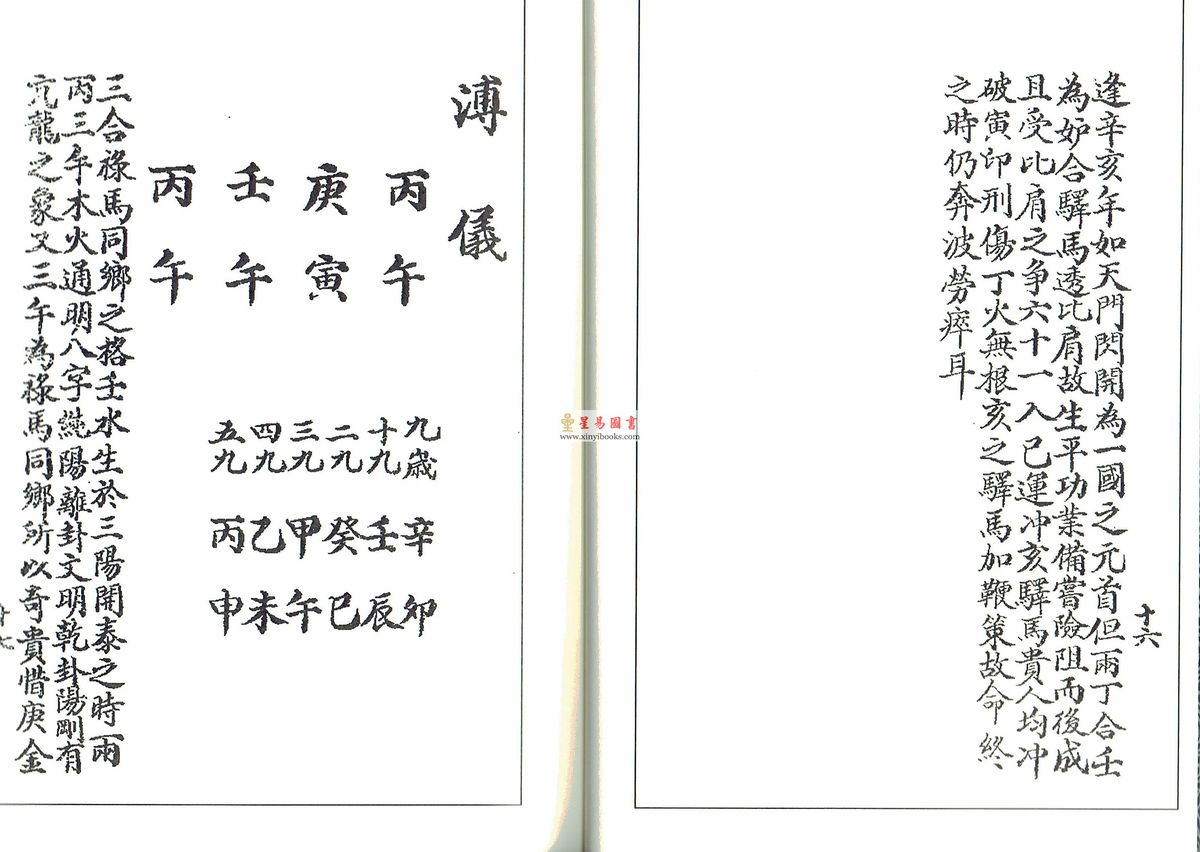 十六
逢辛亥年如天門閃開為一國之元首但兩丁合壬
為妒合驛馬透比肩故生平功業備嘗險阻而後成
且受比肩之爭六十一入巳運冲亥驛馬貴人均冲
破寅印刑傷丁火無根亥之驛馬加鞭策故命終
之時仍奔波勞瘁耳
溥儀
丙午
庚寅
壬午
丙午
九歲 辛卯
十九 壬辰
二九 癸巳
三九 甲午
四九 乙未
五九 丙申
三合祿馬同鄉之格壬水生於三陽開泰之時兩
丙三午木火通明八字純陽離卦文明乾卦陽剛有
亢龍之象又三午為祿馬同鄉所以奇貴惜庚金
十七
星易圖書
www.xinyibooks.com